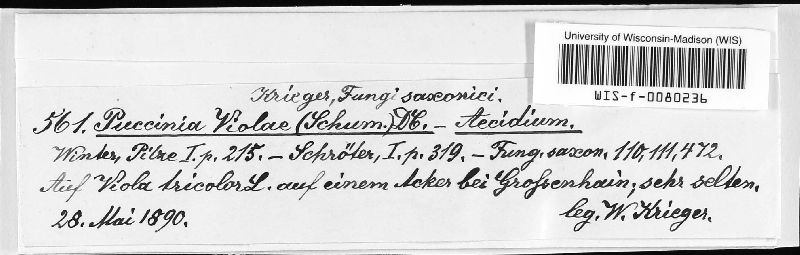 University of Wisconsin-Madison (WIS)
WIS-f-0080236
Krieger, Fungi saxonici.
561. Puccinia Violae (Schum.) DC. – Aecidium.
Winter, Pilze I. p. 215. – Schröter, I. p. 319. – Fung. saxon. 110, 111, 472.
Auf Viola tricolor L. auf einem Acker bei Grossenhain, sehr selten.
28. Mai 1890. leg. W. Krieger.